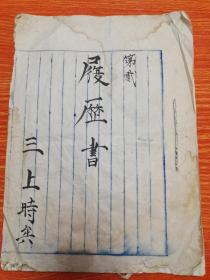 第貳
履歴書
三上時共